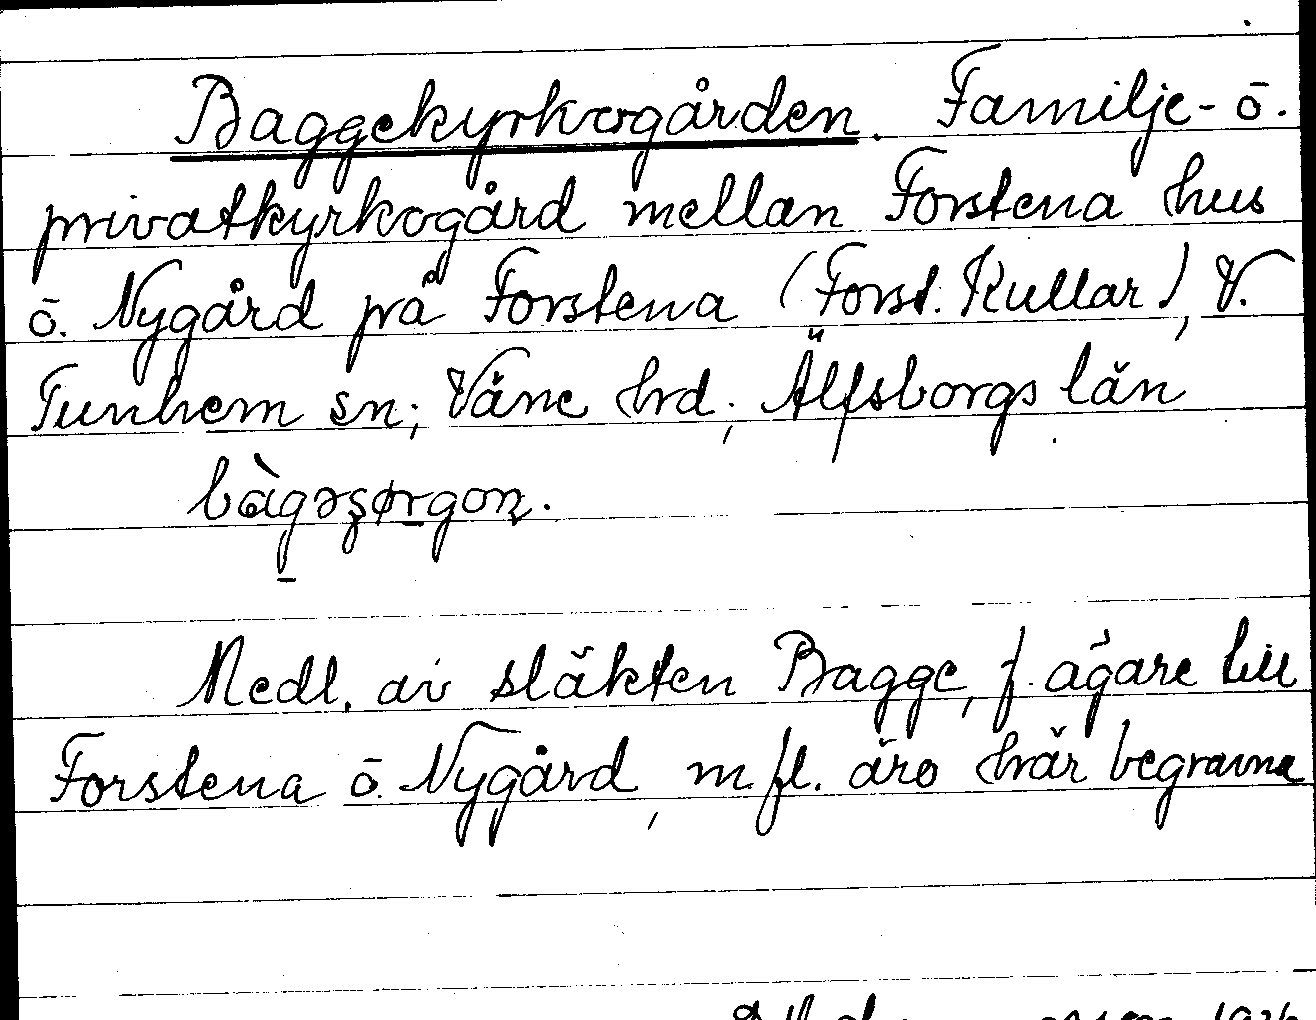 Baggekyrkogården. Familje- o.
privatkyrkogård mellan Forstena hus
o. Nygård på Forstena (Forst. Kullar), V.
Tunhem sn; Väne hrd, Älfsborgs län
bàgəsørgon.
Medl. av släkten Bagge, f. ägare till
Forstena o. Nygård, m. fl. äro här begravna